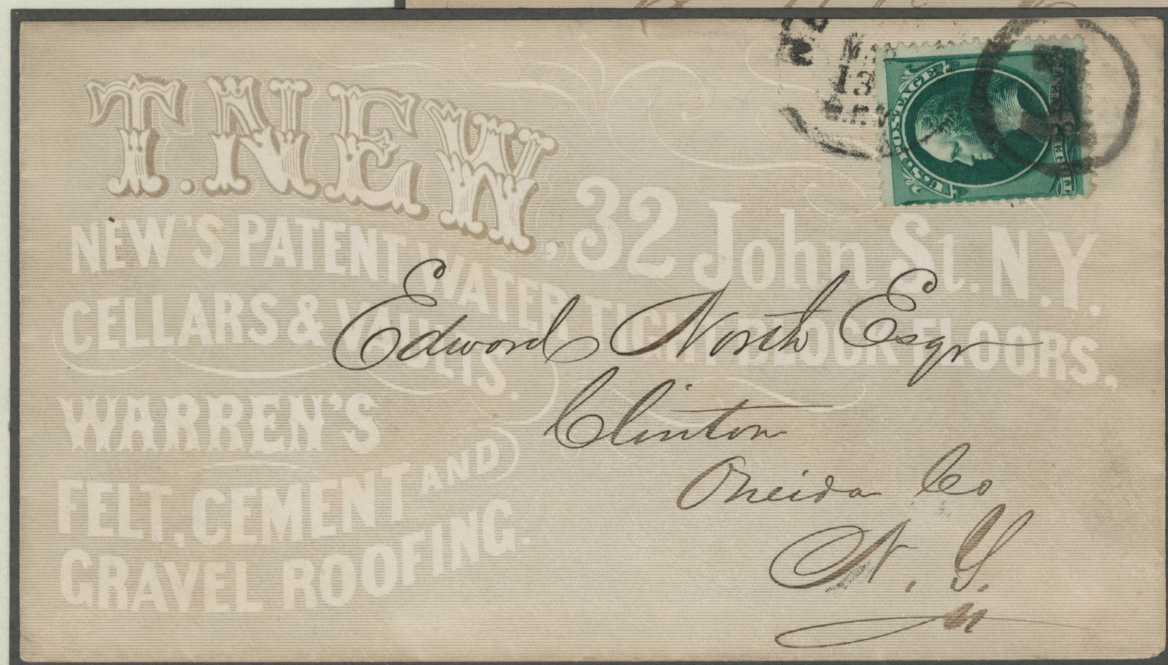 T. NEW,
32 John St. N.Y.
NEW'S PATENT WATER TIGHT BLOCK FLOORS,
CELLARS & VAULTS.
WARREN'S
FELT, CEMENT AND
GRAVEL ROOFING.
MAR
13
U.S. POSTAGE
Edward North Esqr
Clinton
Oneida Co
N. Y.